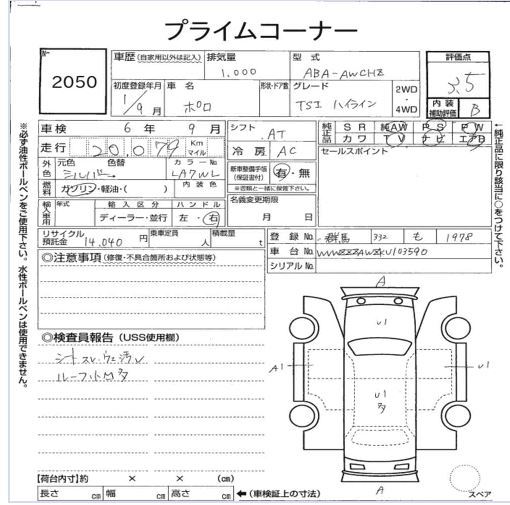 プライムコーナー
No.
2050
車歴 (自家用以外は記入)
排気量
1.000
型式
ABA-AWCHZ
評価点
3.5
初度登録年月
1/9 月
車名
ポロ
形状・ドア数
グレード
TSI ハイライン
2WD
4WD
内装
補助評価
B
車検 6年 9月
シフト AT
走行 20.079 Km マイル
冷房 AC
純正品 SR AW PS PW
カワ TV ナビ エアB
セールスポイント
外色 元色 シルバー 色替
カラーNo. LA7WL
内装色
燃料 ガソリン・軽油・( )
新車整備手帳(保証書付) 有・無
※書類と一緒に保管下さい。
名義変更期限
月 日
輸入車用 年式
輸入区分 ディーラー・並行
ハンドル 左・右
リサイクル預託金 14.040 円
乗車定員 人
積載量 t
登録No. 群馬 332 も 1978
車台No.
シリアルNo.
◎注意事項 (修復・不具合箇所および状態等)
◎検査員報告 (USS使用欄)
A
U1
A1
U1
U1
多
A
スペア
【荷台内寸】約 × × (cm)
長さ cm 幅 cm 高さ cm
←(車検証上の寸法)
※必ず油性ボールペンをご使用下さい。水性ボールペンは使用できません。
←純正品に限り該当に○をつけて下さい。